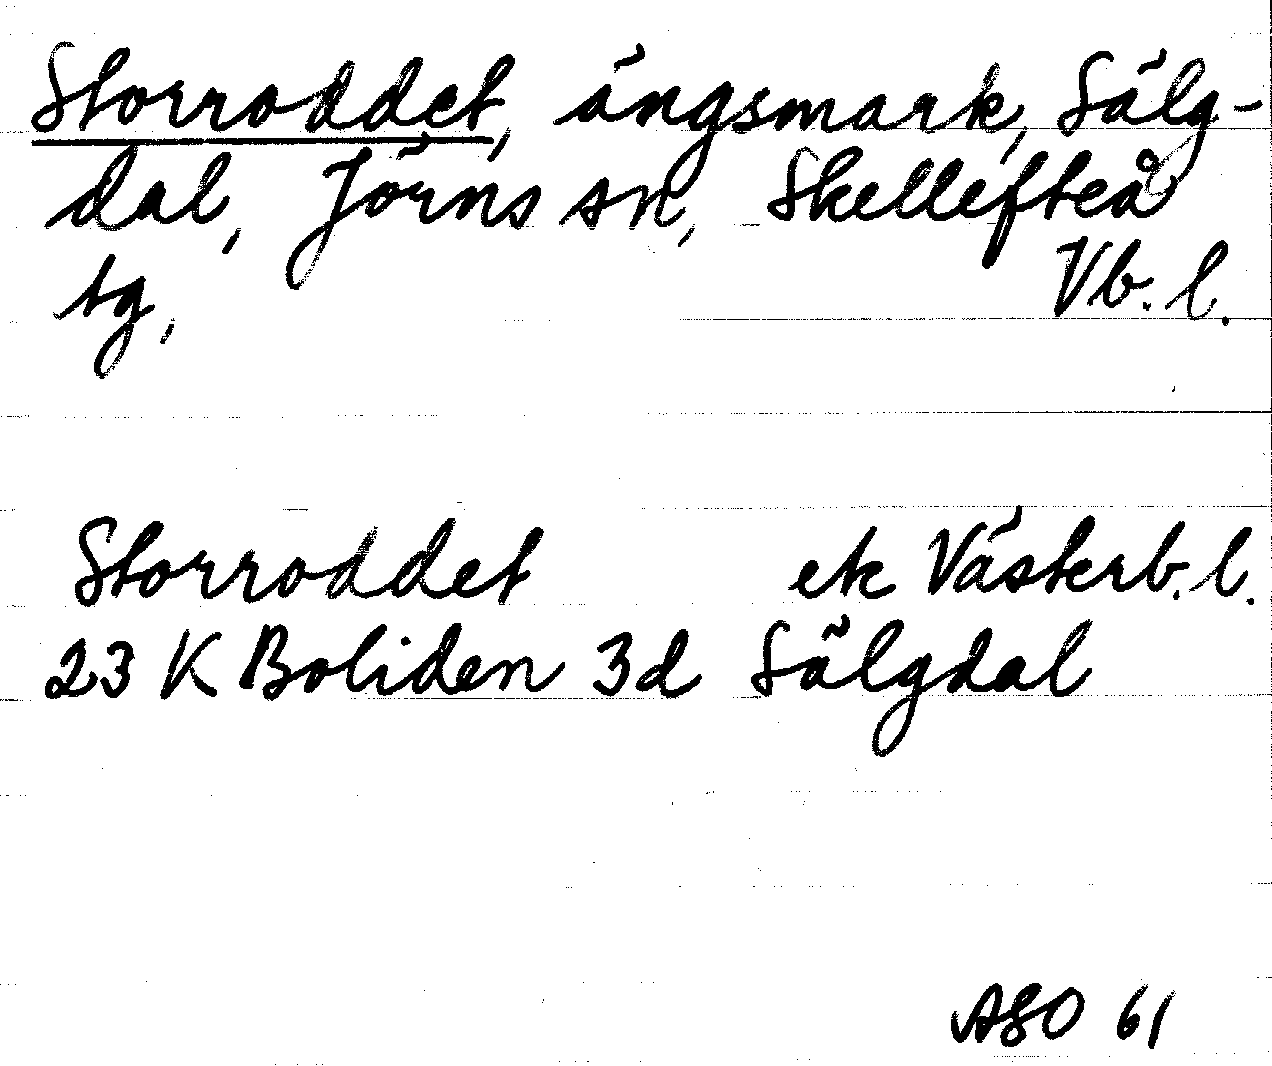 Storroddet, ängsmark, Sälg-
dal, Jörns sn, Skellefteå
tg, Vb. l.
Storroddet ek Västerb. l.
23 K Boliden 3d Sälgdal
ASO 61